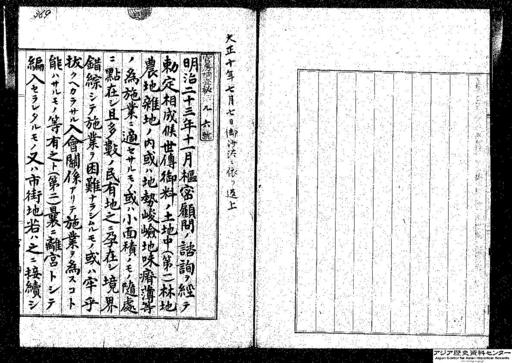 369
大正十年七月七日御沙汰ニ依リ返上
明治二十三年十一月樞密顧問ノ諮詢ヲ經テ
勅定相成候世傳御料ノ土地中(第一)林地
農地雜地ノ內或ハ地勢峻嶮地味瘠薄等
ノ爲施業ニ適セサルモノ或ハ小面積ノモノ隨處
ニ點在シ且多數ノ民有地之ニ孕在シ境界
錯綜シテ施業ヲ困難ナラシムルモノ或ハ牢乎
拔クヘカラサル入會關係アリテ施業ヲ爲スコト
能ハサルモノ等有之(第二)曩ニ離宮トシテ
編入セラレタルモノ又ハ市街地若ハ之ニ接續シ
アジア歴史資料センター
Japan Center for Asian Historical Records